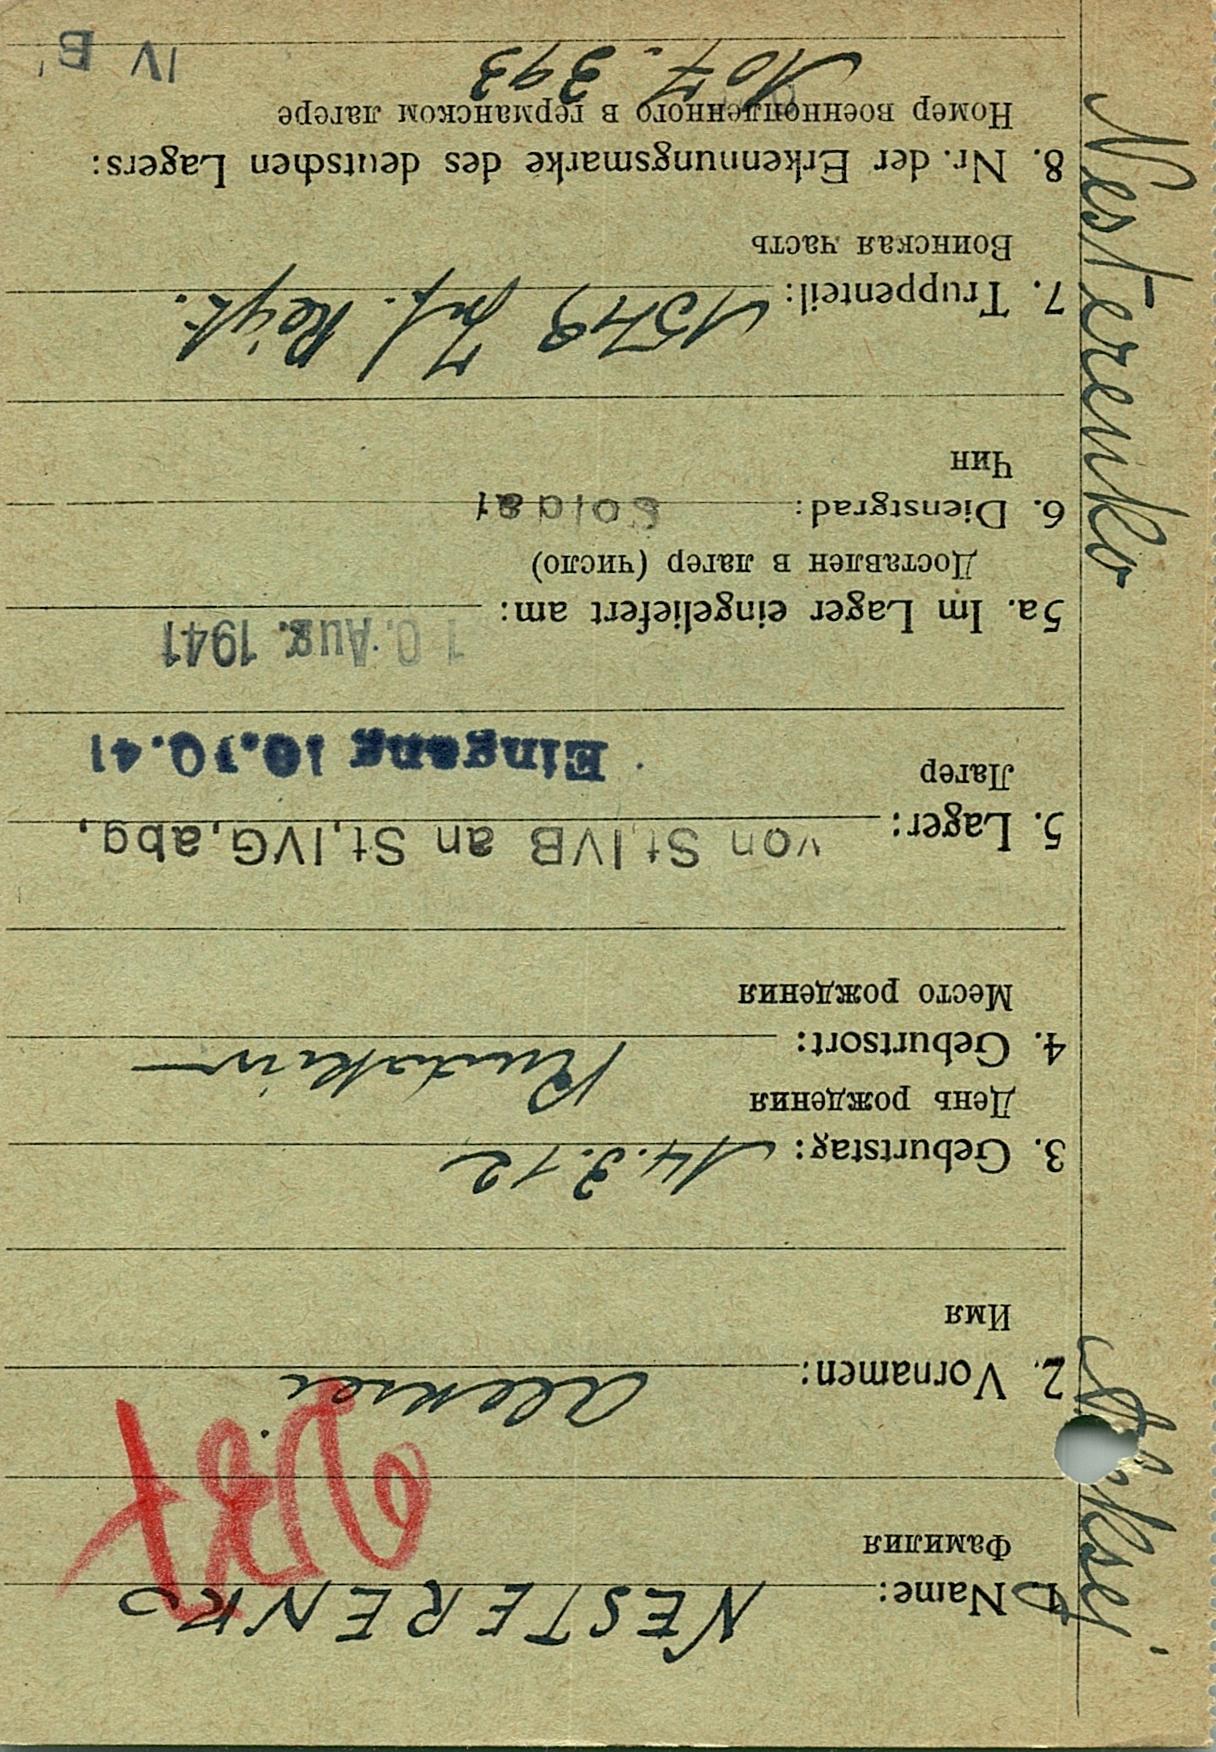 Nesterenko Aleksej
1. Name: NESTERENKO
Фамилия
2. Vornamen: Aleksei
Имя
3. Geburtstag: 14.3.12
День рождения
4. Geburtsort:
Место рождения
5. Lager: von St,IVB an St,IVG,abg,
Лагер
Eingang 10.10.41
5a. Im Lager eingeliefert am:
10. Aug. 1941
Доставлен в лагер (число)
6. Dienstgrad: Soldat
Чин
7. Truppenteil: Inf. Regt.
Воинская часть
8. Nr. der Erkennungsmarke des deutschen Lagers:
Номер военнопленного в германском лагере
107.393
IV B